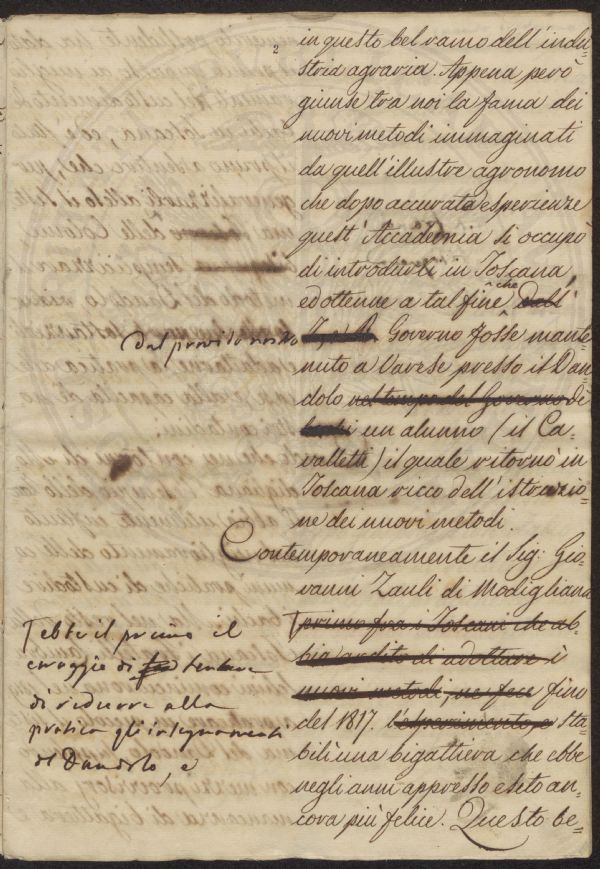 2
in questo bel ramo dell'indu=
stria agraria. Appena però
giunse tra noi la fama dei
nuovi metodi immaginati
da quell'illustre agronomo
che dopo accurata esperienze
quest'Accademia si occupò
di introdurli in Toscana
ed ottenne a tal fine che dall'
dal provido nostro Governo fosse mante=
nuto a Varese presso il Dan=
dolo nel tempo del Governo di
un alunno (il Ca=
valletti) il quale ritornò in
Toscana ricco dell'istruzio=
ne dei nuovi metodi.
Contemporaneamente il Sig: Gio=
vanni Zauli di Modigliana
primo fra i Toscani che ab=
bia ardito di adottare i
nuovi metodi, ne fece fino
del 1817. l'esperimento, e sta=
bilì una bigattiera che ebbe
negli anni appresso esito an=
cora più felice. Questo be=
ebbe il primo il
coraggio di tentare
di ridurre alla
pratica gl'insegnamenti
di Dandolo, e